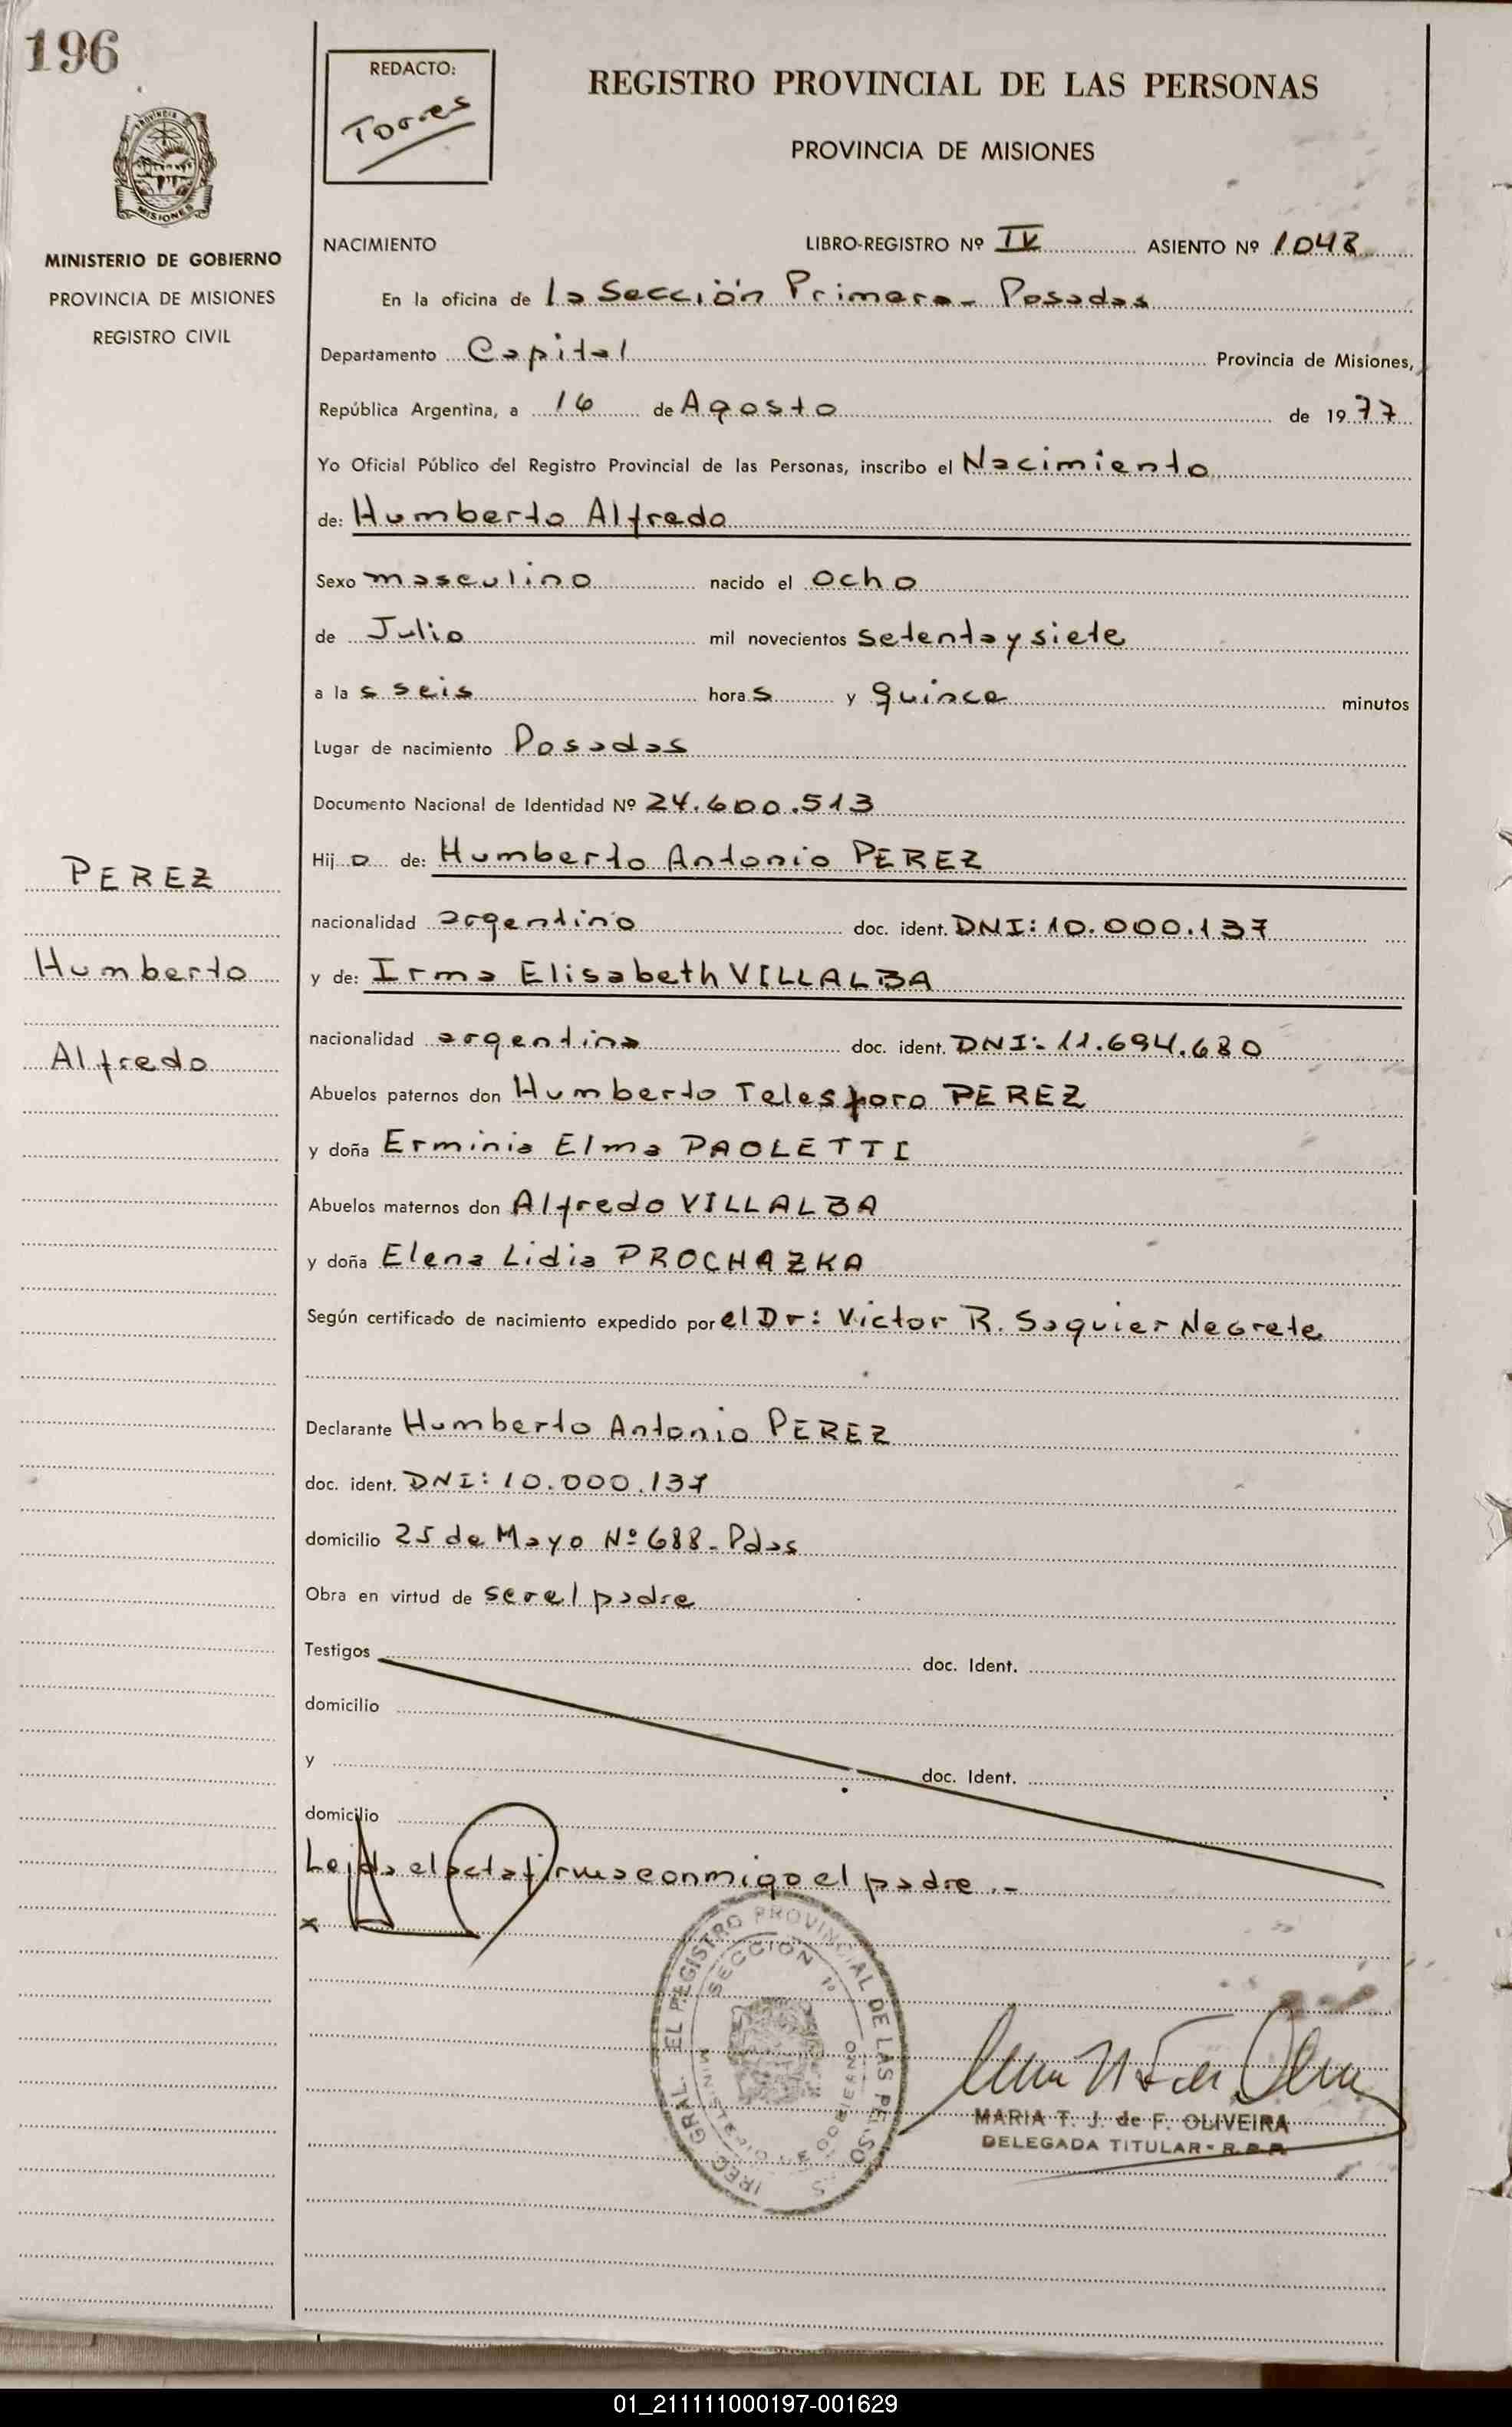 196
REDACTO:
Torres
REGISTRO PROVINCIAL DE LAS PERSONAS
PROVINCIA DE MISIONES
PROVINCIA DE
MISIONES
MINISTERIO DE GOBIERNO
PROVINCIA DE MISIONES
REGISTRO CIVIL
NACIMIENTO LIBRO-REGISTRO Nº IV ASIENTO Nº 1048
En la oficina de la Sección Primera- Posadas
Departamento Capital Provincia de Misiones,
República Argentina, a 16 de Agosto de 1977
Yo Oficial Público del Registro Provincial de las Personas, inscribo el Nacimiento
de: Humberto Alfredo
Sexo masculino nacido el ocho
de Julio mil novecientos setenta y siete
a la s seis hora s y quince minutos
Lugar de nacimiento Posadas
Documento Nacional de Identidad Nº 24.600.513
Hij o de: Humberto Antonio PEREZ
PEREZ
nacionalidad argentino doc. ident. DNI: 10.000.137
Humberto
y de: Irma Elisabeth VILLALBA
nacionalidad argentina doc. ident. DNI: 11.694.680
Alfredo
Abuelos paternos don Humberto Telesforo PEREZ
y doña Erminia Elma PAOLETTI
Abuelos maternos don Alfredo VILLALBA
y doña Elena Lidia PROCHAZKA
Según certificado de nacimiento expedido por el Dr: Victor R. Saquier Negrete
Declarante Humberto Antonio PEREZ
doc. ident. DNI: 10.000.137
domicilio 25 de Mayo Nº 688- Pdas
Obra en virtud de ser el padre
Testigos doc. Ident.
domicilio
y doc. Ident.
domicilio
Leida el acta firma conmigo el padre.-
x
EL REGISTRO PROVINCIAL DE LAS
SECCION 1º
MARIA T. J. de F. OLIVEIRA
DELEGADA TITULAR - R.P.P.
01_211111000197-001629